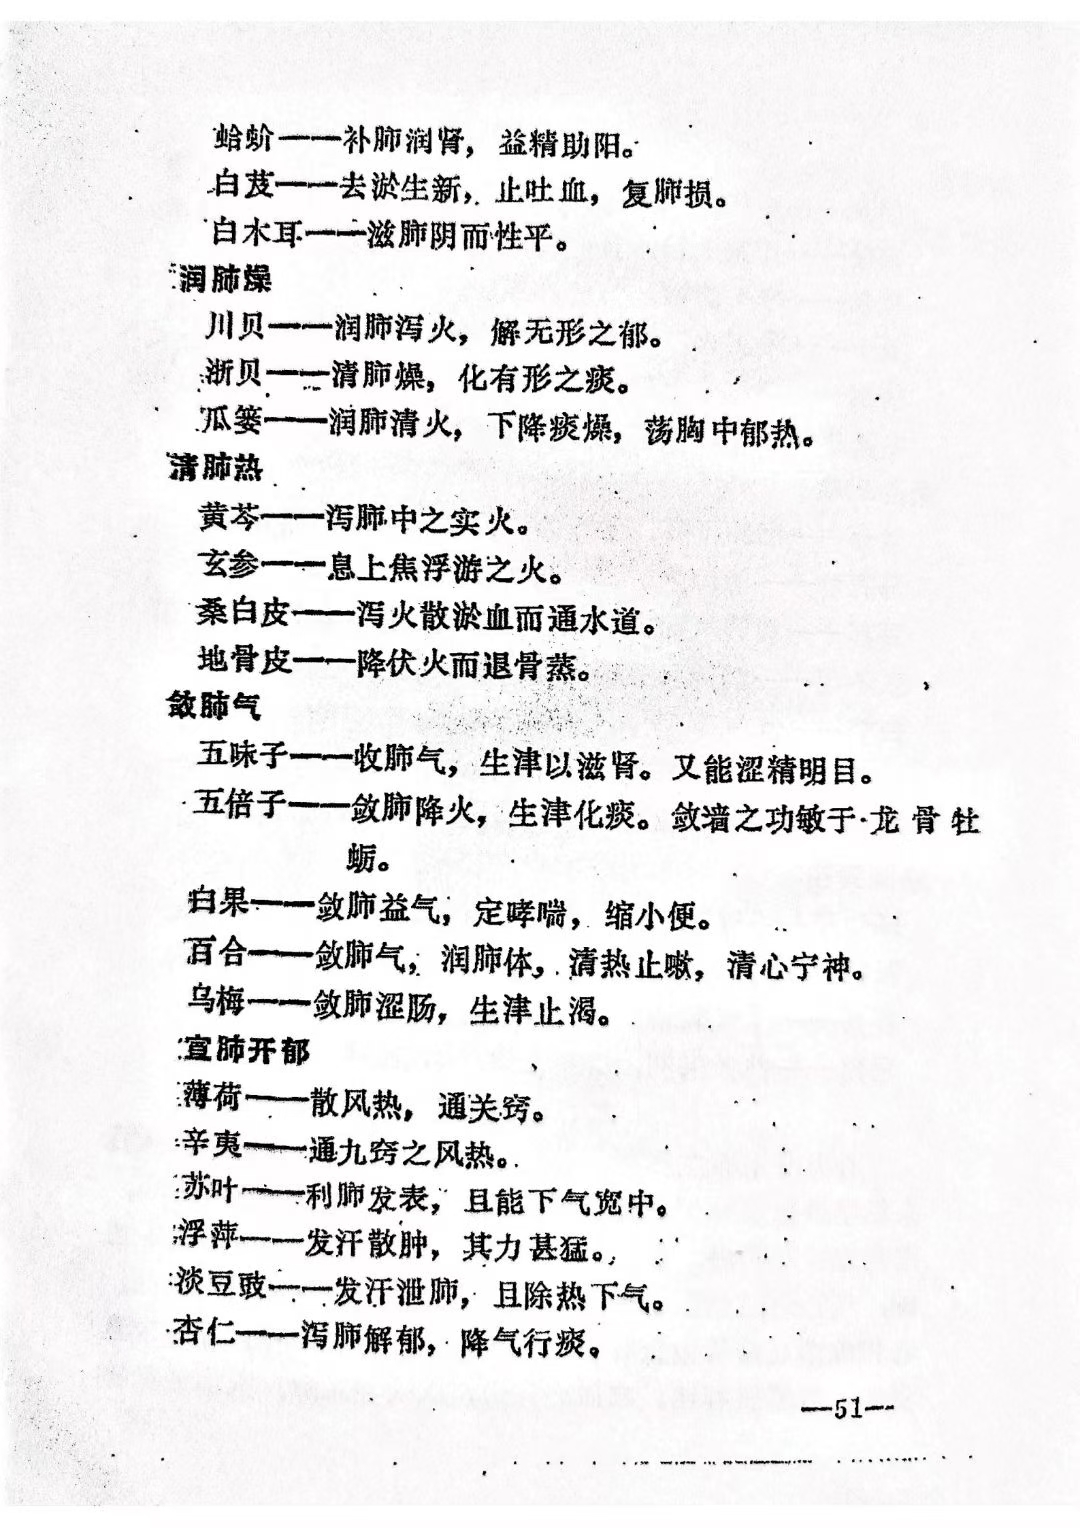 蛤蚧——补肺润肾，益精助阳。
白芨——去淤生新，止吐血，复肺损。
白木耳——滋肺阴而性平。
润肺燥
川贝——润肺泻火，解无形之郁。
浙贝——清肺燥，化有形之痰。
瓜篓——润肺清火，下降痰燥，荡胸中郁热。
清肺热
黄芩——泻肺中之实火。
玄参——息上焦浮游之火。
桑白皮——泻火散淤血而通水道。
地骨皮——降伏火而退骨蒸。
敛肺气
五味子——收肺气，生津以滋肾。又能涩精明目。
五倍子——敛肺降火，生津化痰。敛墙之功敏于龙骨牡
蛎。
白果——敛肺益气，定哮喘，缩小便。
百合——敛肺气，润肺体，清热止嗽，清心宁神。
乌梅——敛肺涩肠，生津止渴。
宣肺开郁
薄荷——散风热，通关窍。
辛夷——通九窍之风热。
苏叶——利肺发表，且能下气宽中。
浮萍——发汗散肿，其力甚猛。
淡豆豉——发汗泄肺，且除热下气。
杏仁——泻肺解郁，降气行痰。
—51—